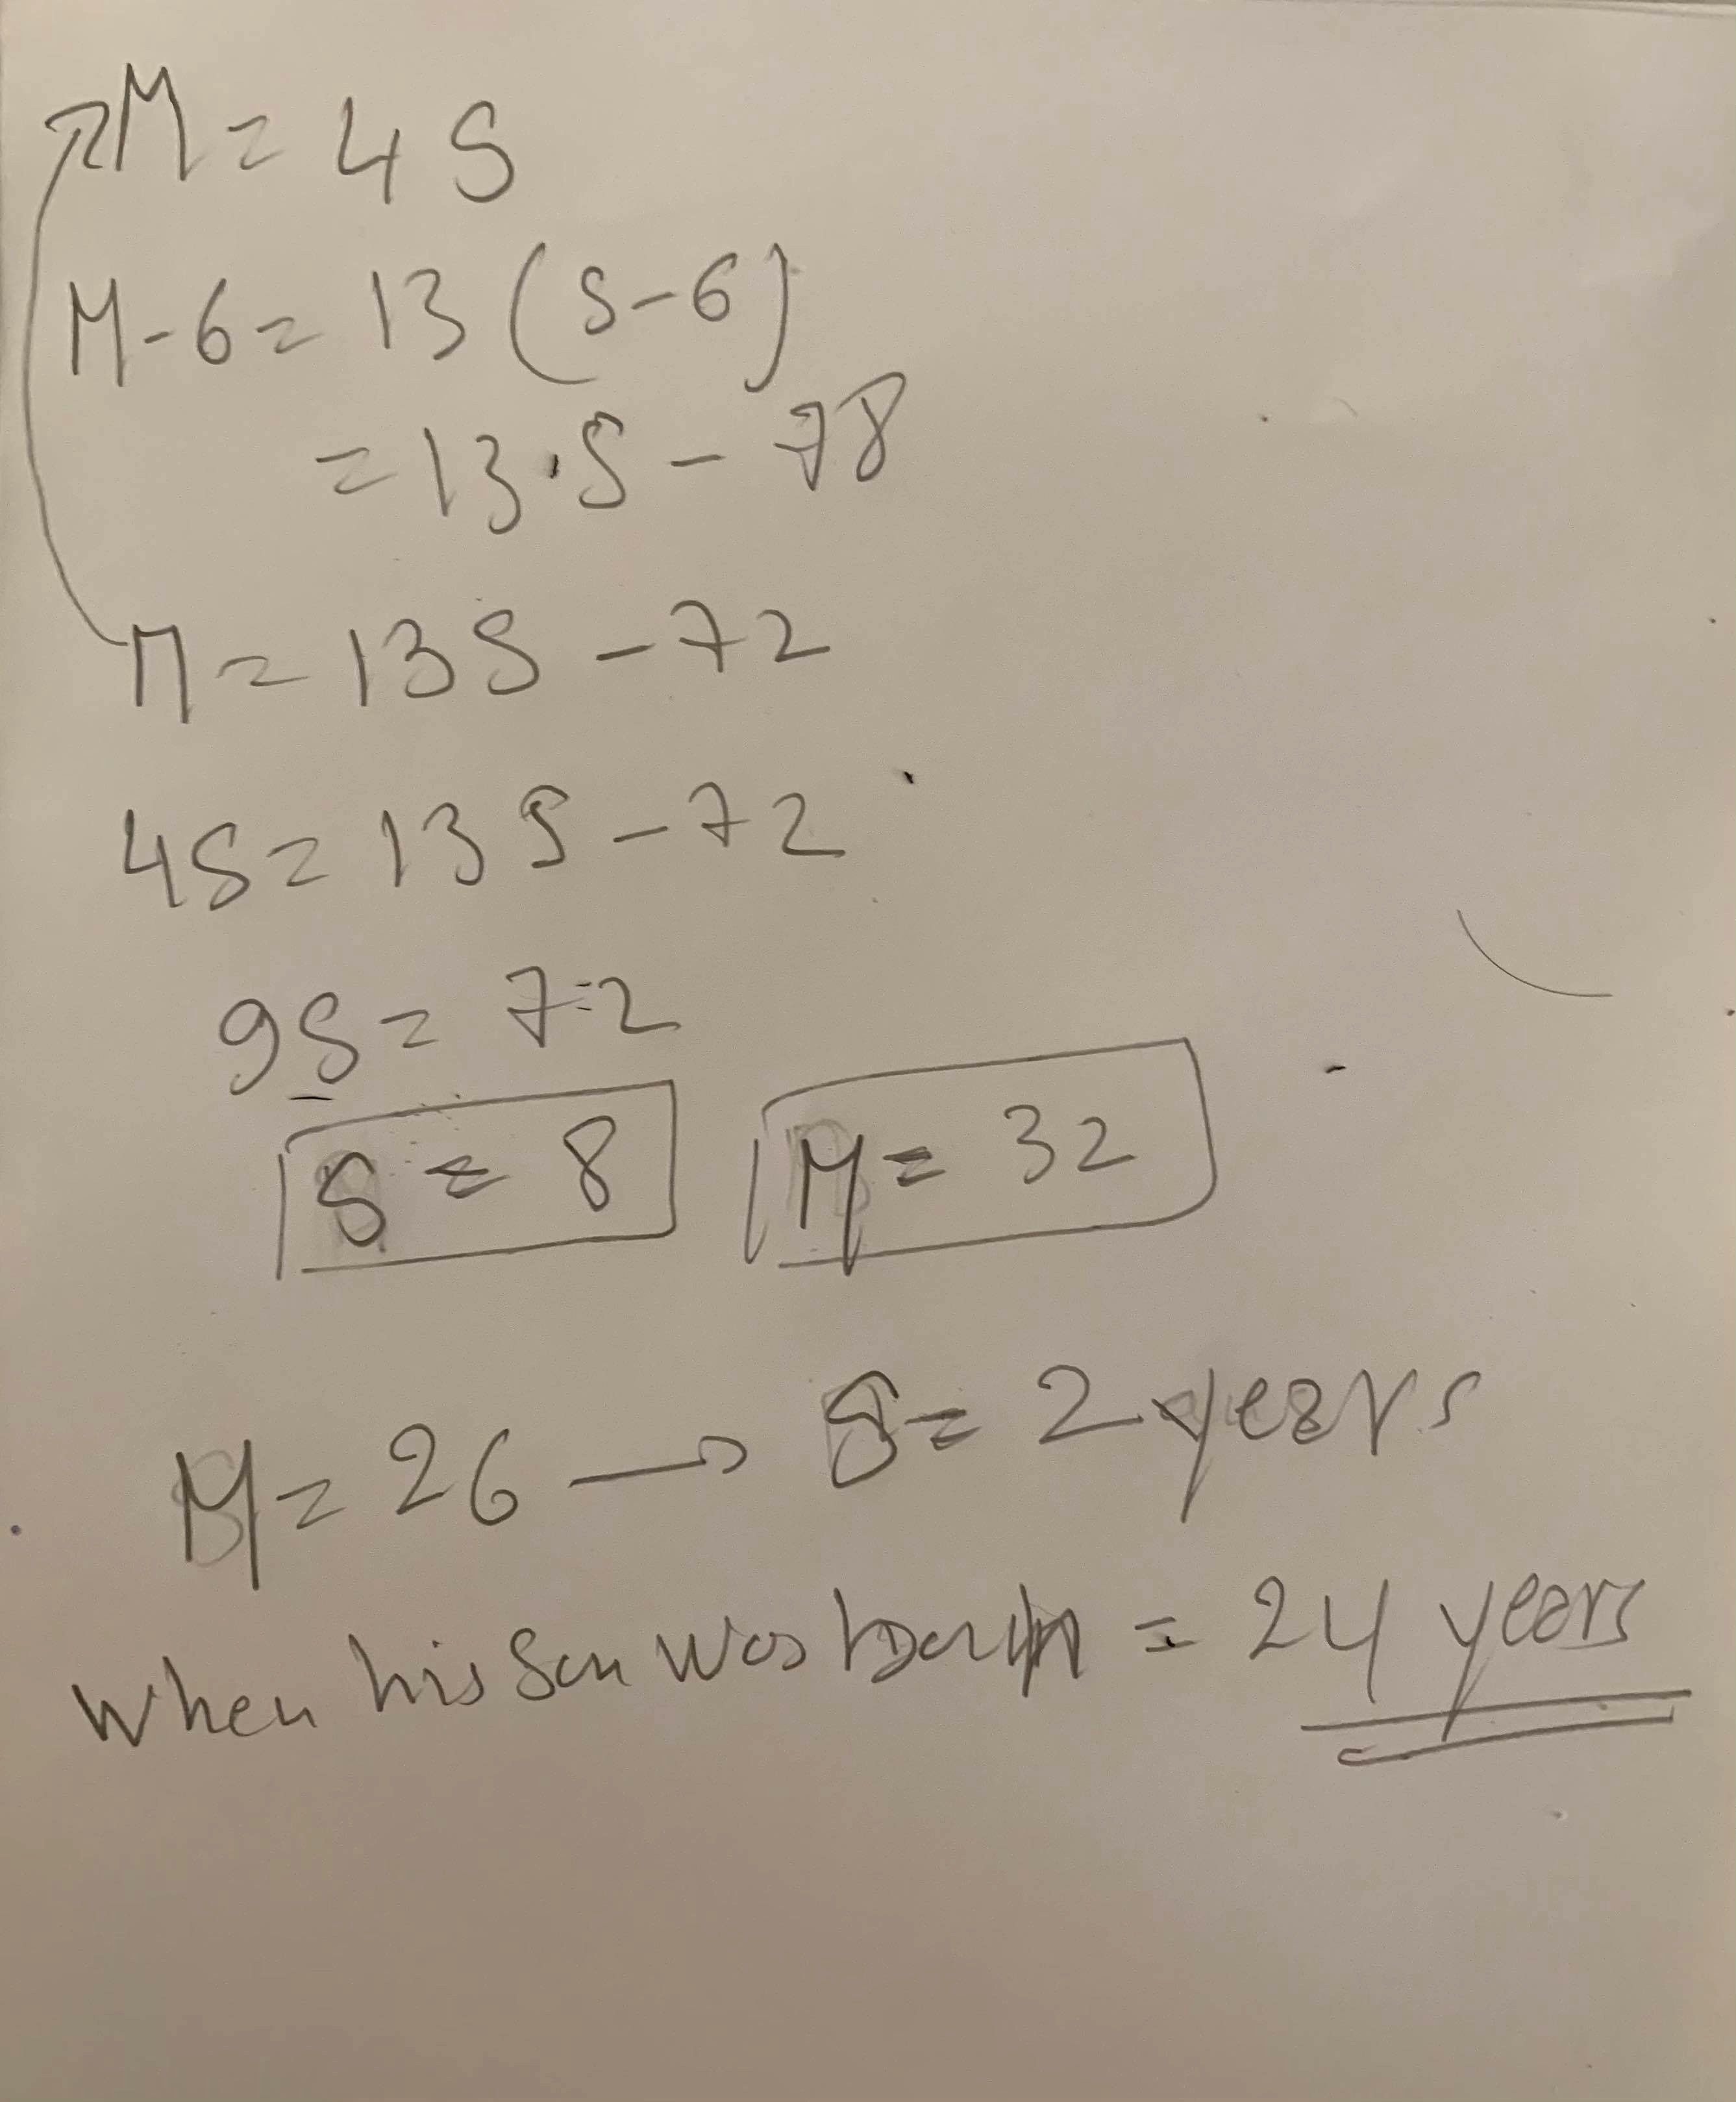 M = 4 S
M - 6 = 13 ( S - 6 )
= 13 · S - 78
M = 13 S - 72
4S = 13 S - 72
9S = 72
S = 8 M = 32
M = 26 → S = 2 years
When his Son was born = 24 years